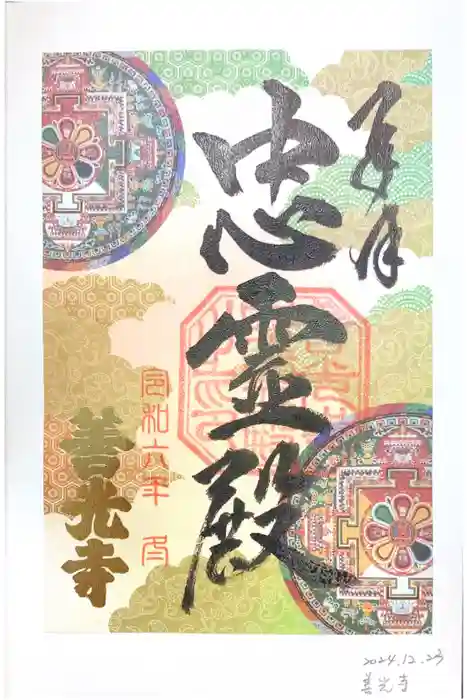 奉拝
忠霊殿
令和六年
善光寺
2024.12.23
善光寺